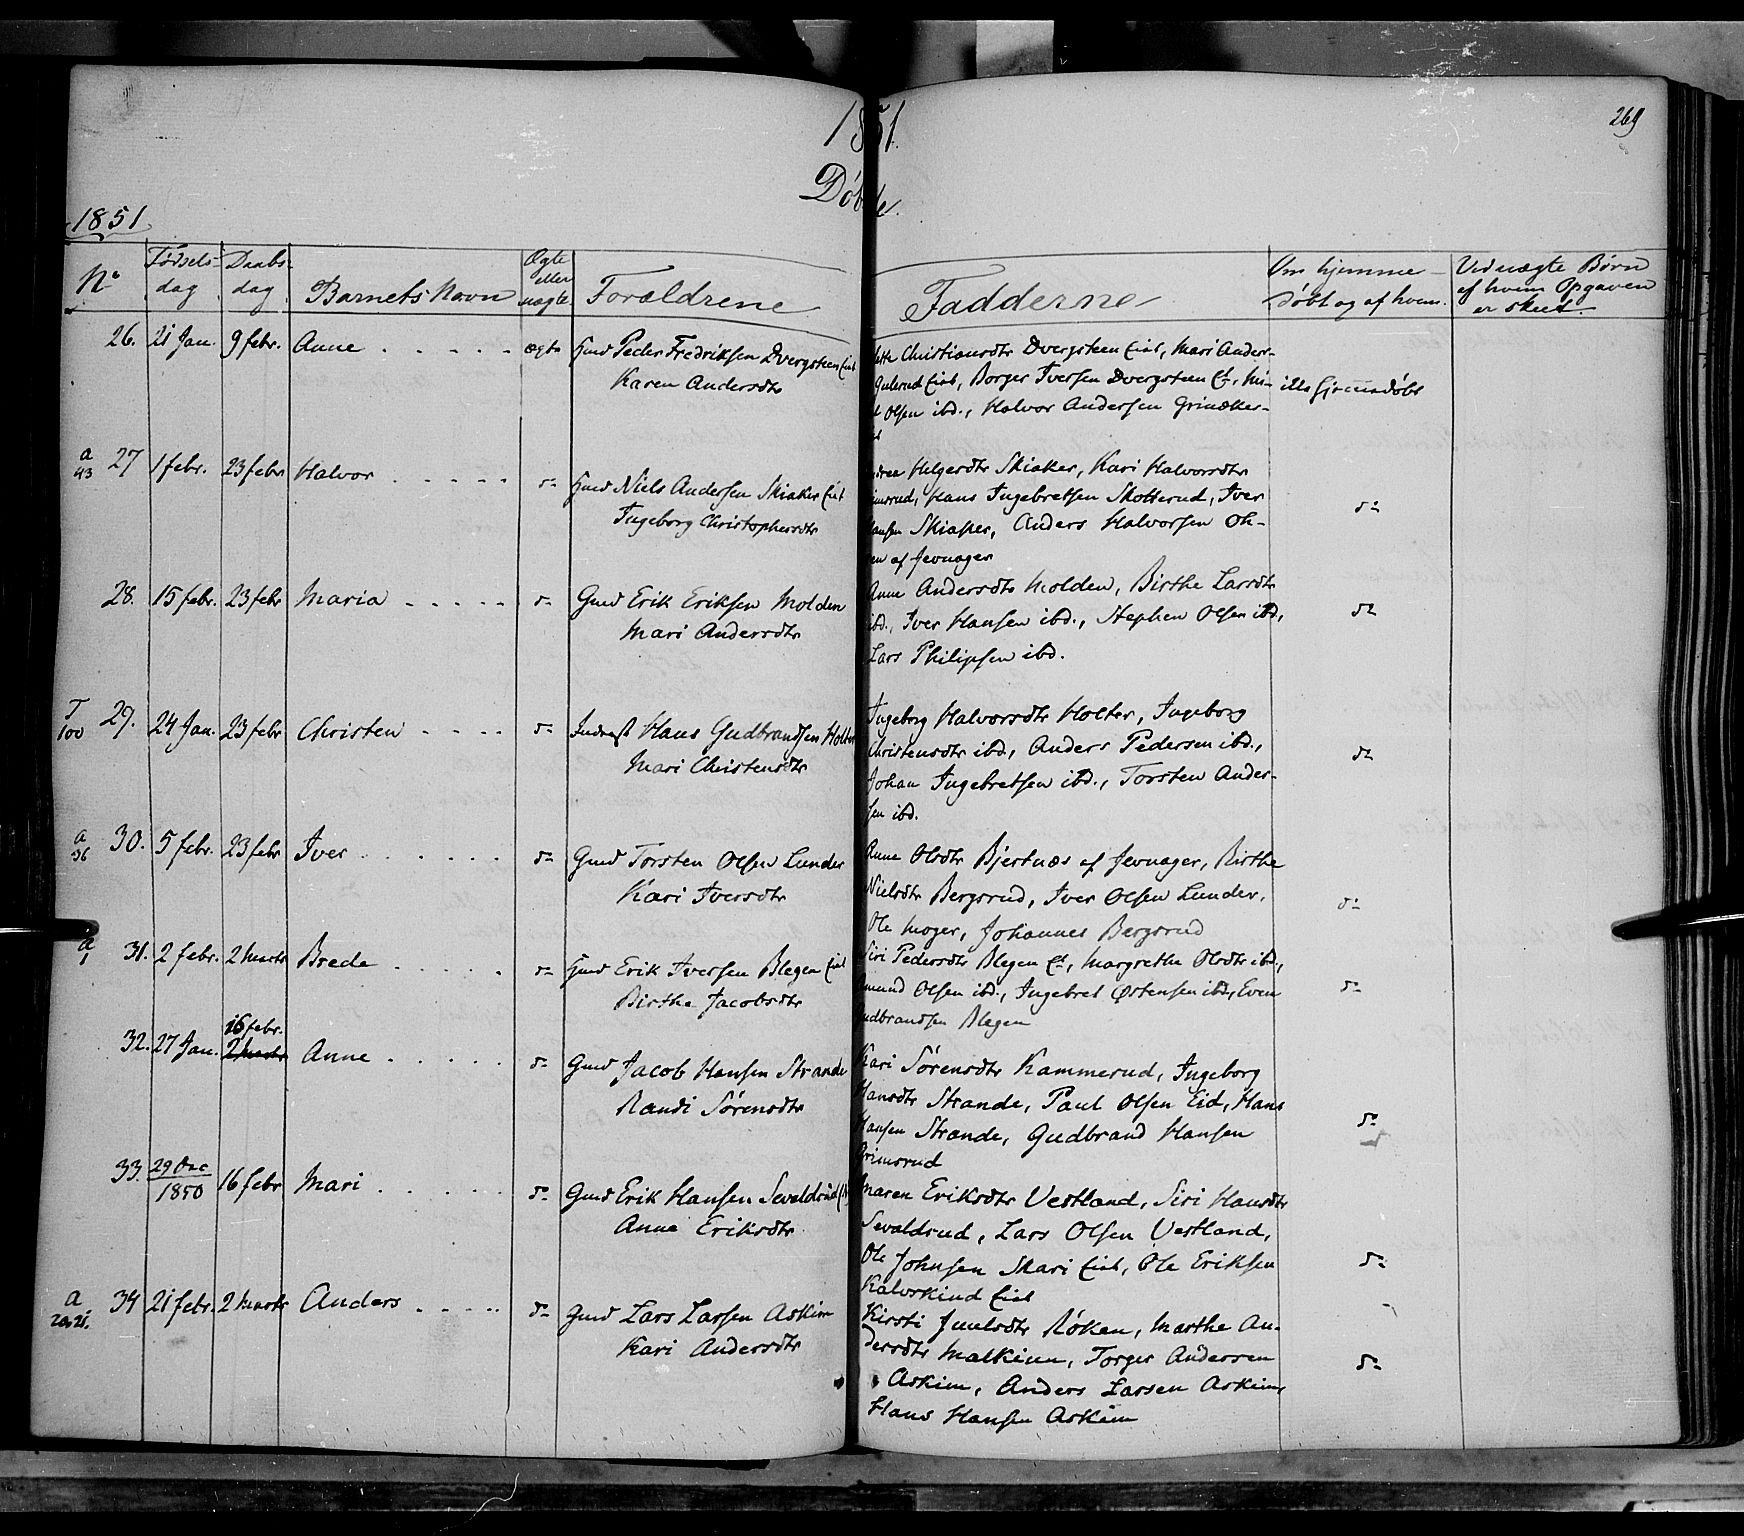 1851.
269
Døbte.
1851
No Fødsels- dag Daabs- dag Barnets Navn Ægte eller uægte Forældrene Fadderne Om hjemme- døbt og af hvem. Ved uægte Børn af hvem Opgaven er skeet.
26. 21 Jan. 9 febr. Anne . . . . . ægte Gmd Peder Fredriksen Dvergsteen Eiet
Karen Andersdtr
Christiansdtr Dvergsteen Eiet, Mari Anders-
Gulerud Eiet, Borger Iversen Dvergsteen Et, Ni-
Olsen ibd., Halvor Andersen Grinaker-
ikke hjemmedøbt
a 43 27 1 febr. 23 febr Halvor . . . . . do Gmd Niels Andersen Skiaker Eiet
Ingeborg Christophersdtr
Helgesdtr Skiaker, Kari Halvorsdtr
Hans Ingebretsen Skotterud, Iver
Hansen Skiaker, Anders Halvorsen Oh-
en af Jevnager
do
28. 15 febr. 23 febr Maria . . . . . do Gmd Erik Eriksen Molden
Mari Andersdtr
Anne Andersdtr Molden, Birthe Larsdtr
ibd., Iver Hansen ibd., Stephen Olsen ibd,
Lars Philipsen ibd.
do
T 100 29. 24 Jan. 23 febr Christen . . . . do Inderst Hans Gudbrandsen Holter
Mari Christensdtr
Ingeborg Halvorsdtr Holter, Ingeborg
Christensdtr ibd., Anders Pedersen ibd.,
Johan Ingebretsen ibd., Torsten Ander-
sen ibd.
do
a 36 30. 5 febr. 23 febr Iver . . . . . . do Gmd Torsten Olsen Lunder
Kari Iversdtr
Anne Olsdtr Bjertnæs af Jevnager, Birthe
Nielsdtr Bergsrud, Iver Olsen Lunder,
Ole Moger, Johannes Bergsrud
do
a 1 31. 2 febr. 2 Marts Brede . . . . . do Gmd Erik Iversen Blegen Eiet
Birthe Jacobsdtr
Siri Pedersdtr Blegen Et, Margrethe Olsdtr ibd.,
Amund Olsen ibd., Ingebret Østensen ibd., Even
Gudbrandsen Blegen
do
16 febr.
32. 27 Jan. 2 Marts Anne . . . . do Gmd Jacob Hansen Strande
Randi Sørensdtr
Kari Sørensdtr Kammerud, Ingeborg
Hansdtr Strande, Paul Olsen Eid, Hans
Hansen Strande, Gudbrand Hansen
Grimsrud
do
33. 29 Dec 1850 16 febr Mari . . . . . . do Gmd Erik Hansen Sevaldrud
Anne Eriksdtr.
Maren Eriksdtr Vestland, Siri Hansdtr
Sevaldrud, Lars Olsen Vestland,
Ole Johnsen Skari Eiet, Ole Eriksen
Kalvskind Eiet
do
a 34 21 febr. 2 Marts Anders . . . . . do Gmd Lars Larsen Askim
Kari Andersdtr
Kirsti Juulsdtr Røken, Marthe An-
dersdtr Malkinn, Torger Andersen
Askim, Anders Larsen Askim,
Hans Hansen Askim
do